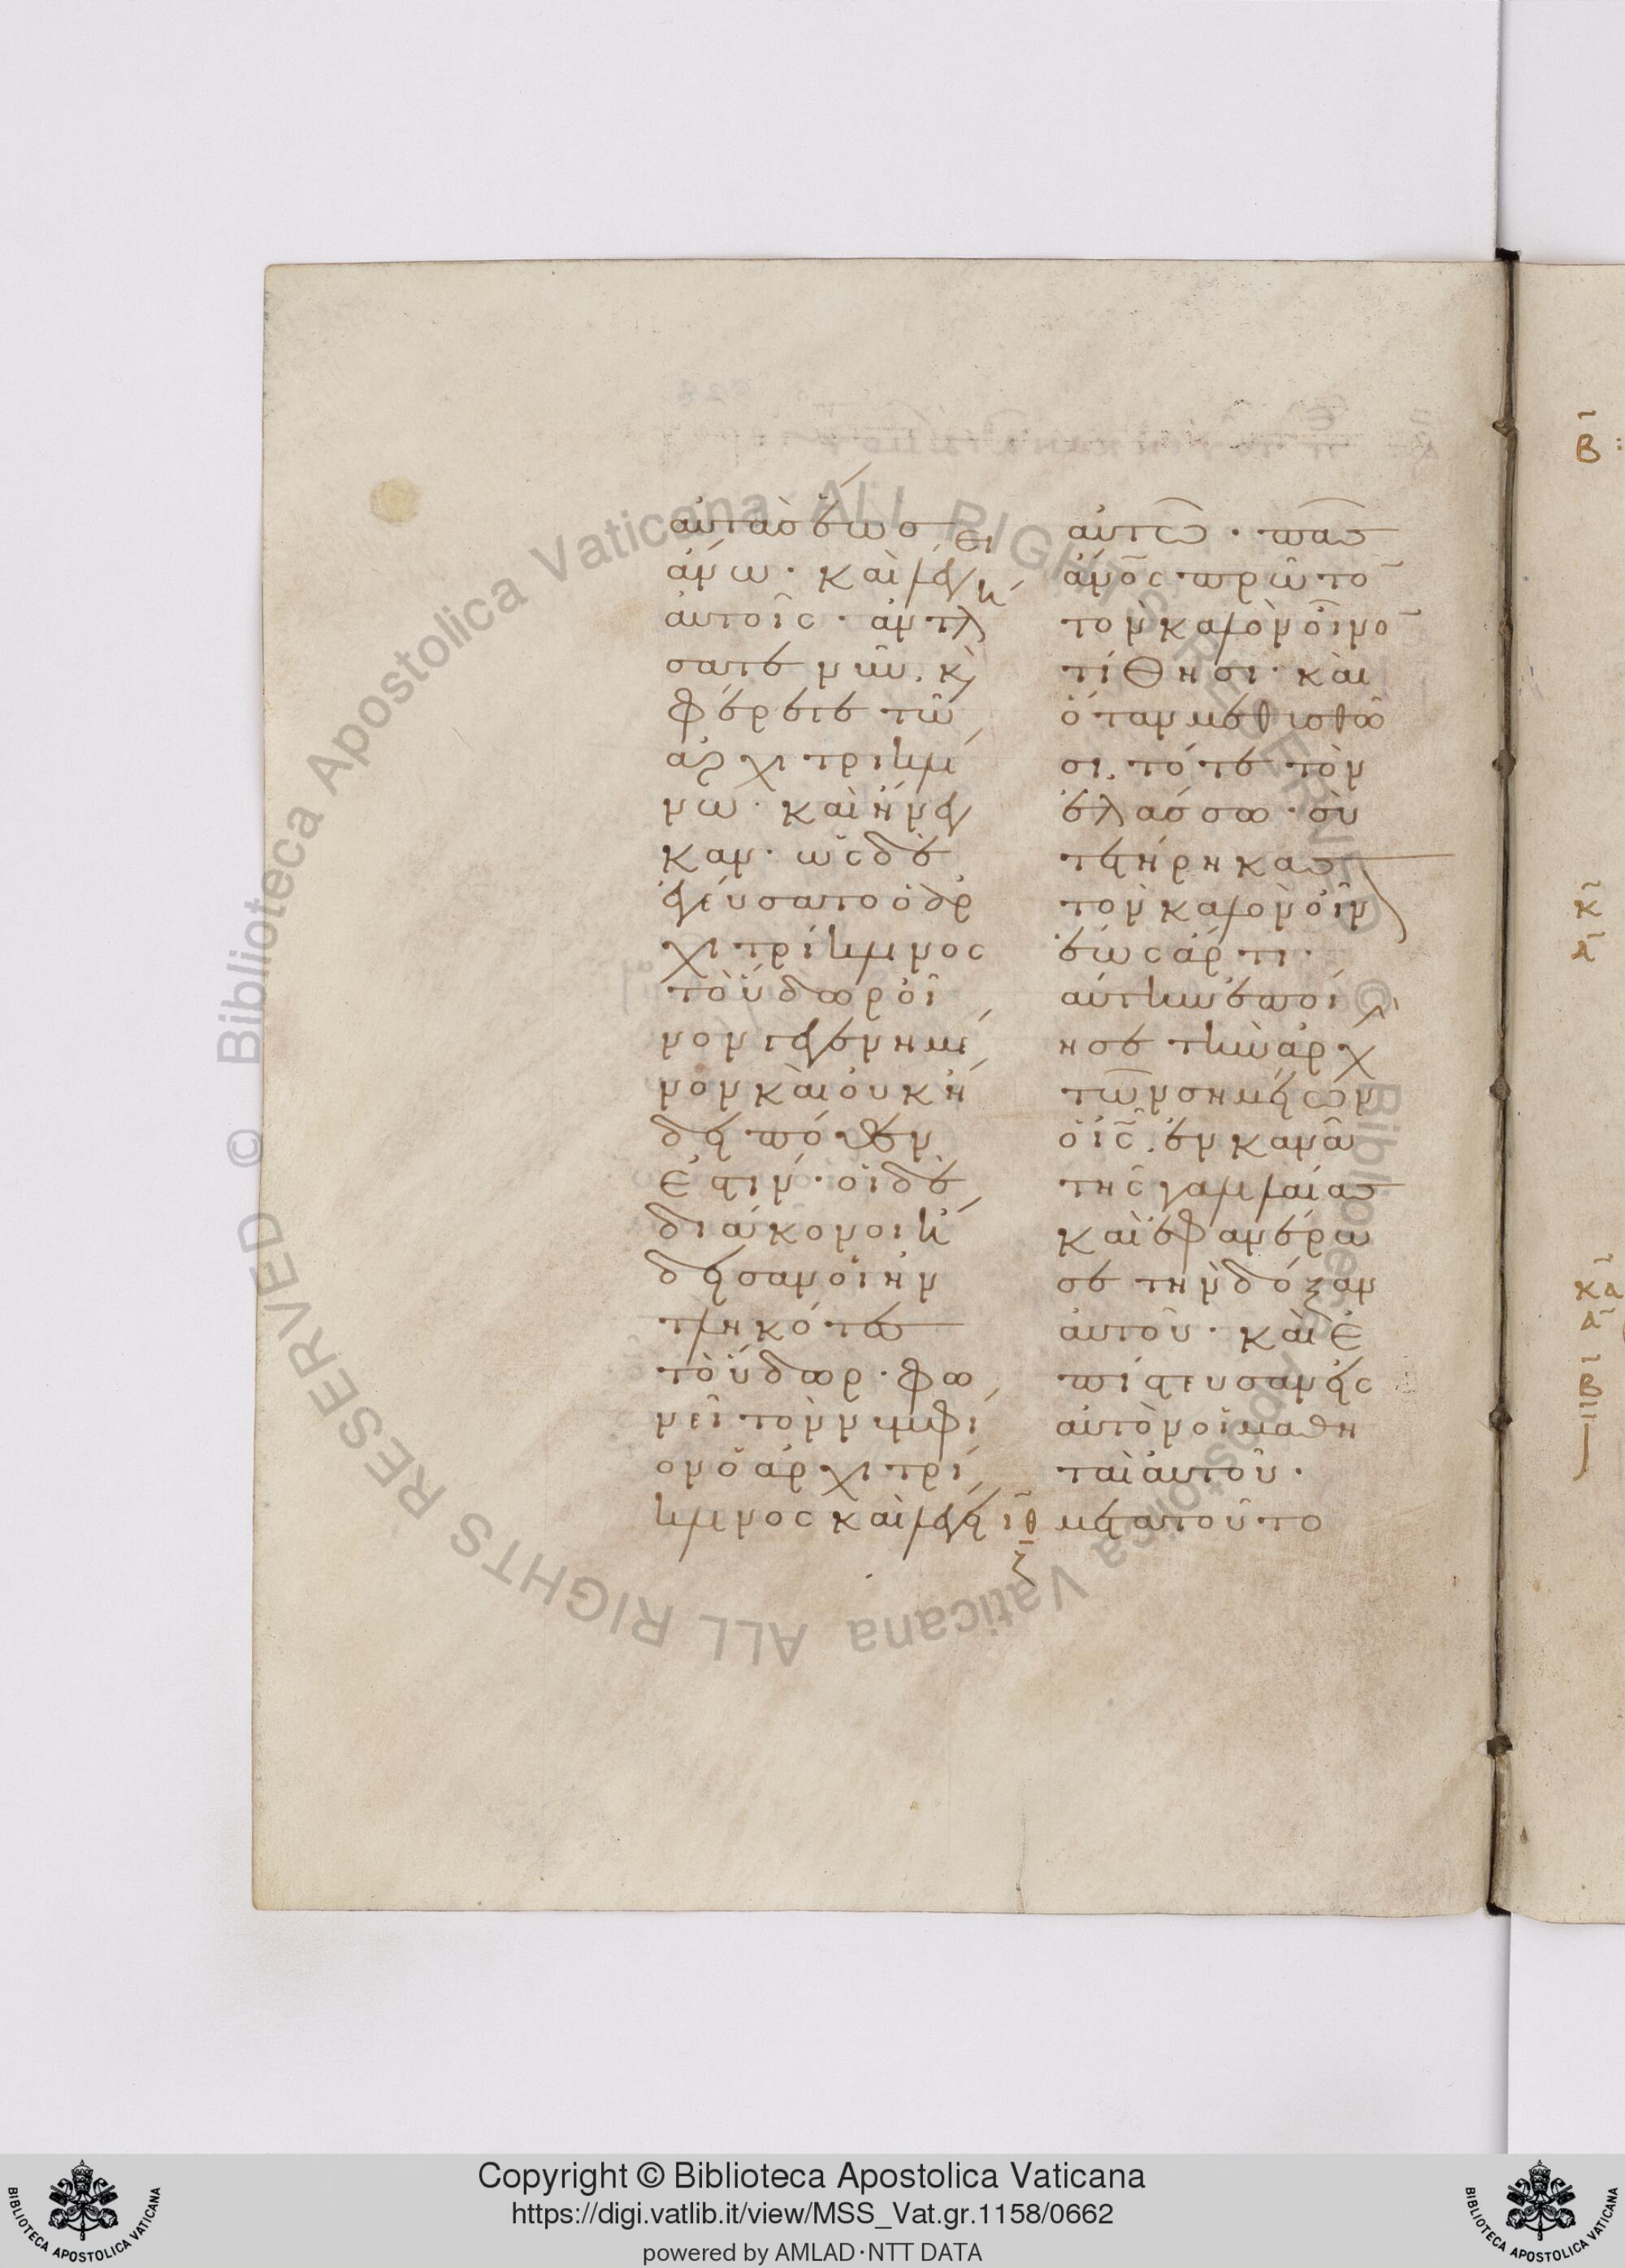 αὐτὰς ἕως
ἄνω. καὶ λέγει
αὐτοῖς. ἀντλή
σατε νῦν. κ(αὶ)
φέρετε τῶ
ἀρχιτρικλί
νω. καὶ ἤνεγ
καν. ὡς δὲ
ἐγεύσατο ὁ ἀρ
χιτρίκλινος
τὸ ὕδωρ οἶ
νον γεγενημέ
νον καὶ οὐκ ἤ
δει πόθεν
ἐστιν. οἱ δὲ
διάκονοι ἤ
δεισαν οἱ ἠν
τληκότες
τὸ ὕδωρ. φω
νεῖ τὸν νυμφί
ον ὁ ἀρχιτρί
κλινος καὶ λέγει
αὐτῶ. πᾶς
ἄνος πρῶτο
τὸν καλὸν οἶνο
τίθησι. καὶ
ὅταν μεθυσθῶ
σι. τότε τὸν
ἐλάσσω. σὺ
τετήρηκας
τὸν καλὸν οἶν
ἕως ἄρτι.
αὐτὴν ἐποί
ησε τὴν ἀρχὴ
τῶν σημείων
ὁ ις. ἐν κανᾶ
τῆς γαλιλαίας
καὶ ἐφανέρω
σε τὴν δόξαν
αὐτοῦ. καὶ ἐ
πίστευσαν εἰς
αὐτὸν οἱ μαθη
ταὶ αὐτοῦ.
ιθ μετὰ τοῦτο
ζ
β
κ
α
κα
α
β
Copyright © Biblioteca Apostolica Vaticana
https://digi.vatlib.it/view/MSS_Vat.gr.1158/0662
powered by AMLAD·NTT DATA
BIBLIOTECA APOSTOLICA VATICANA
BIBLIOTECA APOSTOLICA VATICANA
© Biblioteca Apostolica Vaticana ALL RIGHTS RESERVED © Biblioteca Apostolica Vaticana ALL RIGHTS RESERVED